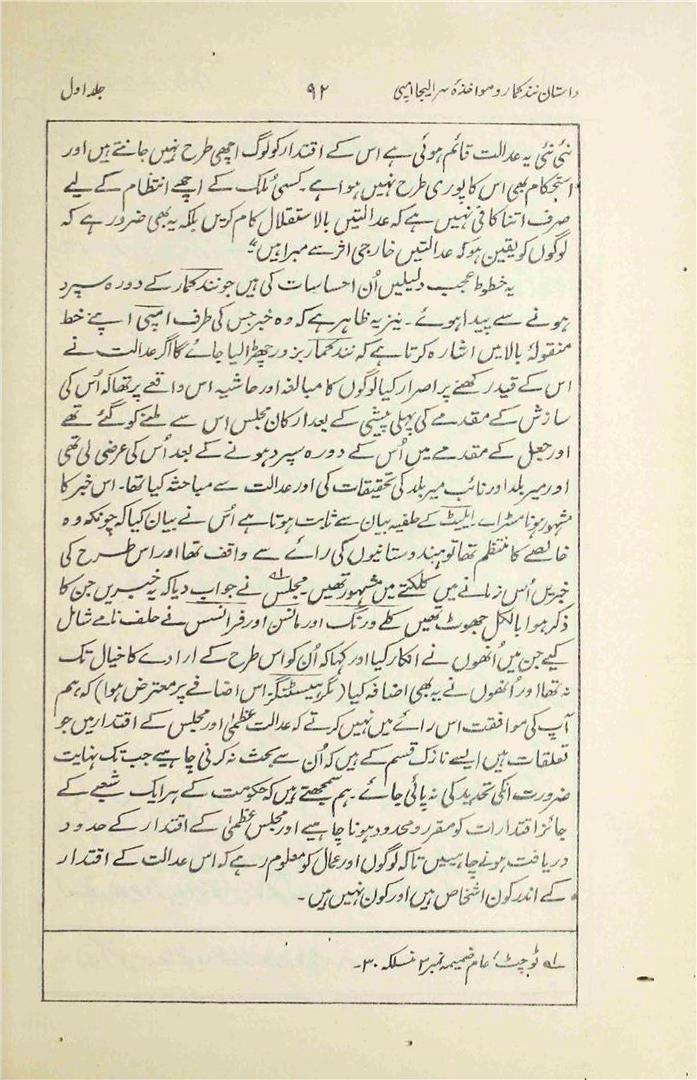 داستان نندکمار و مواخذۂ سر الیجا امپی ۹۲ جلد اول
نئی نئی یہ عدالت قائم ہوئی ہے اس کے اقتدار کو لوگ اچھی طرح نہیں جانتے ہیں اور
استحکام بھی اس کا پوری طرح نہیں ہوا ہے۔ کسی مُلک کے اچھے انتظام کے لیے
صرف اتنا کافی نہیں ہے کہ عدالتیں بالاستقلال کام کریں بلکہ یہ بھی ضرور ہے کہ
لوگوں کو یقین ہو کہ عدالتیں خارجی اثر سے مبرا ہیں"۔
یہ خطوط عجب دلیلیں اُن احساسات کی ہیں جو نندکمار کے دورہ سپرد
ہونے سے پیدا ہوئے۔ نیز یہ ظاہر ہے کہ وہ خبر جس کی طرف امپی اپنے خط
منقولۂ بالا میں اشارہ کرتا ہے کہ نندکمار بزور چھڑا لیا جائے گا اگر عدالت نے
اس کے قید رکھنے پر اصرار کیا لوگوں کا مبالغہ اور حاشیہ اس واقعے پر تھا کہ اُس کی
سازش کے مقدمے کی پہلی پیشی کے بعد ارکان مجلس اس سے ملنے کو گئے تھے
اور جعل کے مقدمے میں اُس کے دورہ سپرد ہونے کے بعد اُس کی عرضی لی تھی
اور میر بلد اور نائب میر بلد کی تحقیقات کی اور عدالت سے مباحثہ کیا تھا۔ اس خبر کا
مشہور ہونا مسٹر اے ایلیٹ کے حلفیہ بیان سے ثابت ہوتا ہے اُس نے بیان کیا کہ چونکہ وہ
خالصے کا منتظم تھا تو ہندوستانیوں کی رائے سے واقف تھا اور اس طرح کی
خبریں اُس زمانے میں کلکتے میں مشہور تھیں۔ مجلس نے جواب دیا کہ یہ خبریں جن کا
ذکر ہوا بالکل جھوٹ تھیں کلے ورنگ اور مانسن اور فرانسس نے حلف نامے شامل
کیے جن میں اُنھوں نے انکار کیا اور کہا کہ اُن کو اس طرح کے ارادے کا خیال تک
نہ تھا اور اُنھوں نے یہ بھی اضافہ کیا (مگر ہیسٹنگز اس اضافے پر معترض ہوا) کہ ہم
آپ کی موافقت اس رائے میں نہیں کرتے کہ عدالت عظمیٰ اور مجلس کے اقتدار میں جو
تعلقات ہیں ایسے نازک قسم کے ہیں کہ اُن سے بحث نہ کرنی چاہیے جب تک نہایت
ضرورت انکی تحدید کی نہ پائی جائے۔ ہم سمجھتے ہیں کہ حکومت کے ہر ایک شعبے کے
جائز اقتدارات کو مقرر و محدود ہونا چاہیے اور مجلس عظمیٰ کے اقتدار کے حدود
دریافت ہونے چاہییں تاکہ لوگوں اور عمال کو معلوم رہے کہ اس عدالت کے اقتدار
کے اندر کون اشخاص ہیں اور کون نہیں ہیں۔
لے عام ضمیمہ نمبر ۲ منسلکہ ۳۰۔